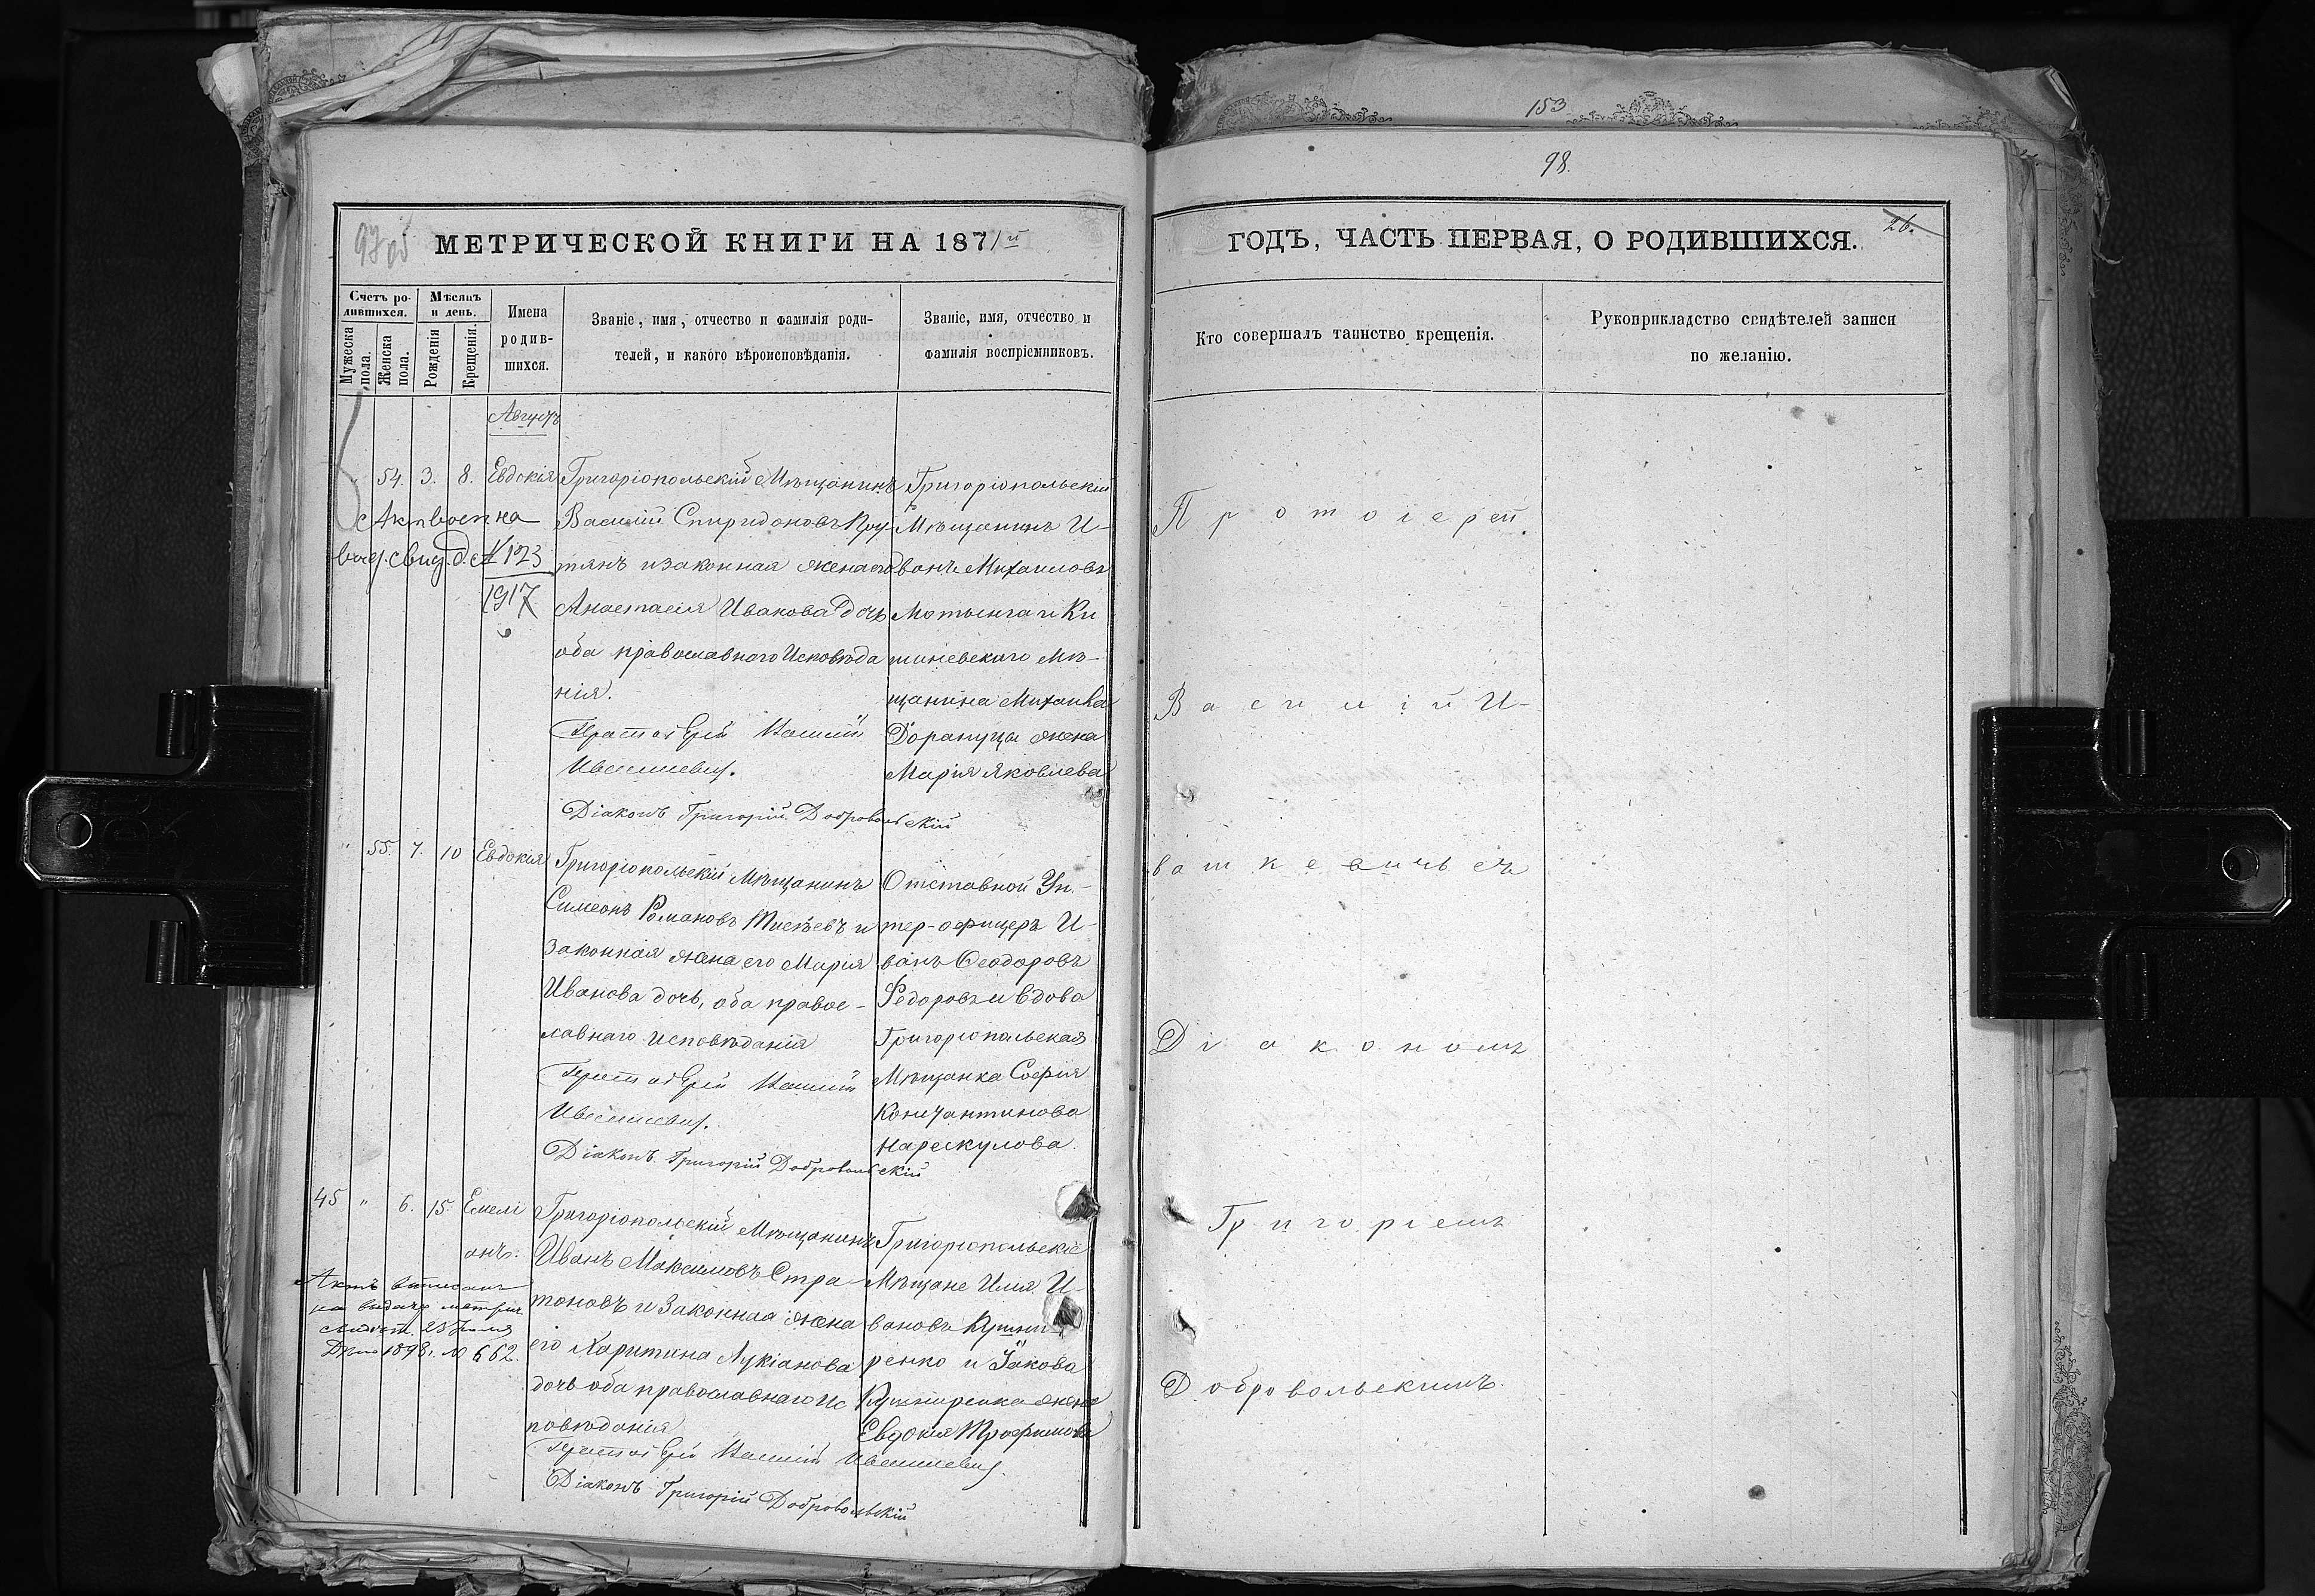 153
98.
97 об
МЕТРИЧЕСКОЙ КНИГИ НА 1871й
ГОДЪ, ЧАСТЬ ПЕРВАЯ, О РОДИВШИХСЯ.
26.
Счетъ ро-
дившихся.
Мужеска
пола.
Женска
пола.
Мѣсяцъ
и день.
Рожденія
Крещенія.
Имена
родив-
шихся.
Званіе, имя, отчество и фамилія роди-
телей, и какого вѣроисповѣданія.
Званіе, имя, отчество и
фамилія воспріемниковъ.
Кто совершалъ таинство крещенія.
Рукоприкладство свидѣтелей записи
по желанію.
Августъ
" 54. 3. 8. Евдокія
№ 123
1917
Григоріопольскій Мѣщанинъ
Василій Спиридоновъ Кру-
тянъ и законная жена его
Анастасія Иванова дочь
оба православнаго Исповѣда
нія.
Протоіерей Василій
Ивашкевич.
Діаконъ Григорій Добровольскій
Григоріопольскій
Мѣщанинъ И-
ванъ Михаиловъ
Мотынга и Ки
шиневскаго Мѣ-
щанина Михаила
Дорануца жена
Марія Яковлева
" 55. 7. 10 Евдокія
Григоріопольскій Мѣщанинъ
Симеонъ Романовъ и
Законная жена его Марія
Иванова дочь, оба правос-
лавнаго исповѣданія
Протоіерей Василій
Ивашкевич.
Діаконъ Григорій Добровольскій
Отставной Ун-
тер-офицеръ И-
ванъ Ѳеодоровъ
Федоровъ и вдова
Григоріопольская
Мѣщанка Софія
Константинова
45 " 6. 15. Емелі
анъ.
Актъ выписанъ
на выдачу метрич.
1898. № 662.
Григоріопольскій Мѣщанинъ
Иванъ Максимовъ Стра-
тоновъ и Законная жена
его Харитина Лукіанова
дочь оба православнаго Ис
повѣданія
Протоіерей Василій Ивашкевич.
Діаконъ Григорій Добровольскій
Григоріопольскіе
Мѣщане Илія И-
вановъ
ренко и Іакова
жена
Евдокія Трофимова
Протоіерей
Василій И-
вашкевичъ съ
Діакономъ
Григоріемъ
Добровольскимъ.